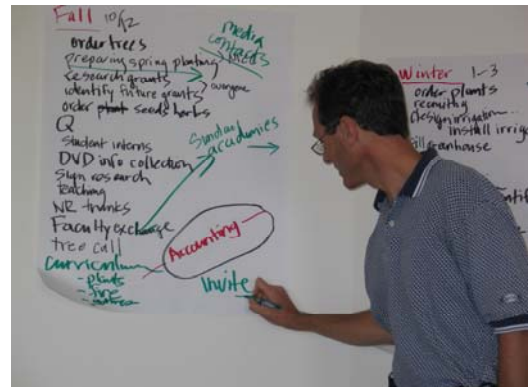 Fall 10/12
order trees
preparing spring planting
research grants
identify future grants
everyone
order plant seeds herbs
Q
student interns
DVD info collection
sign research
teaching
NR thanks
Faculty exchange
tree call
curriculum
- plants
- fire
media
contacts
academies
Accounting
Invite
Winter 1-3
order plants
recruiting
design irrigation
install irrig